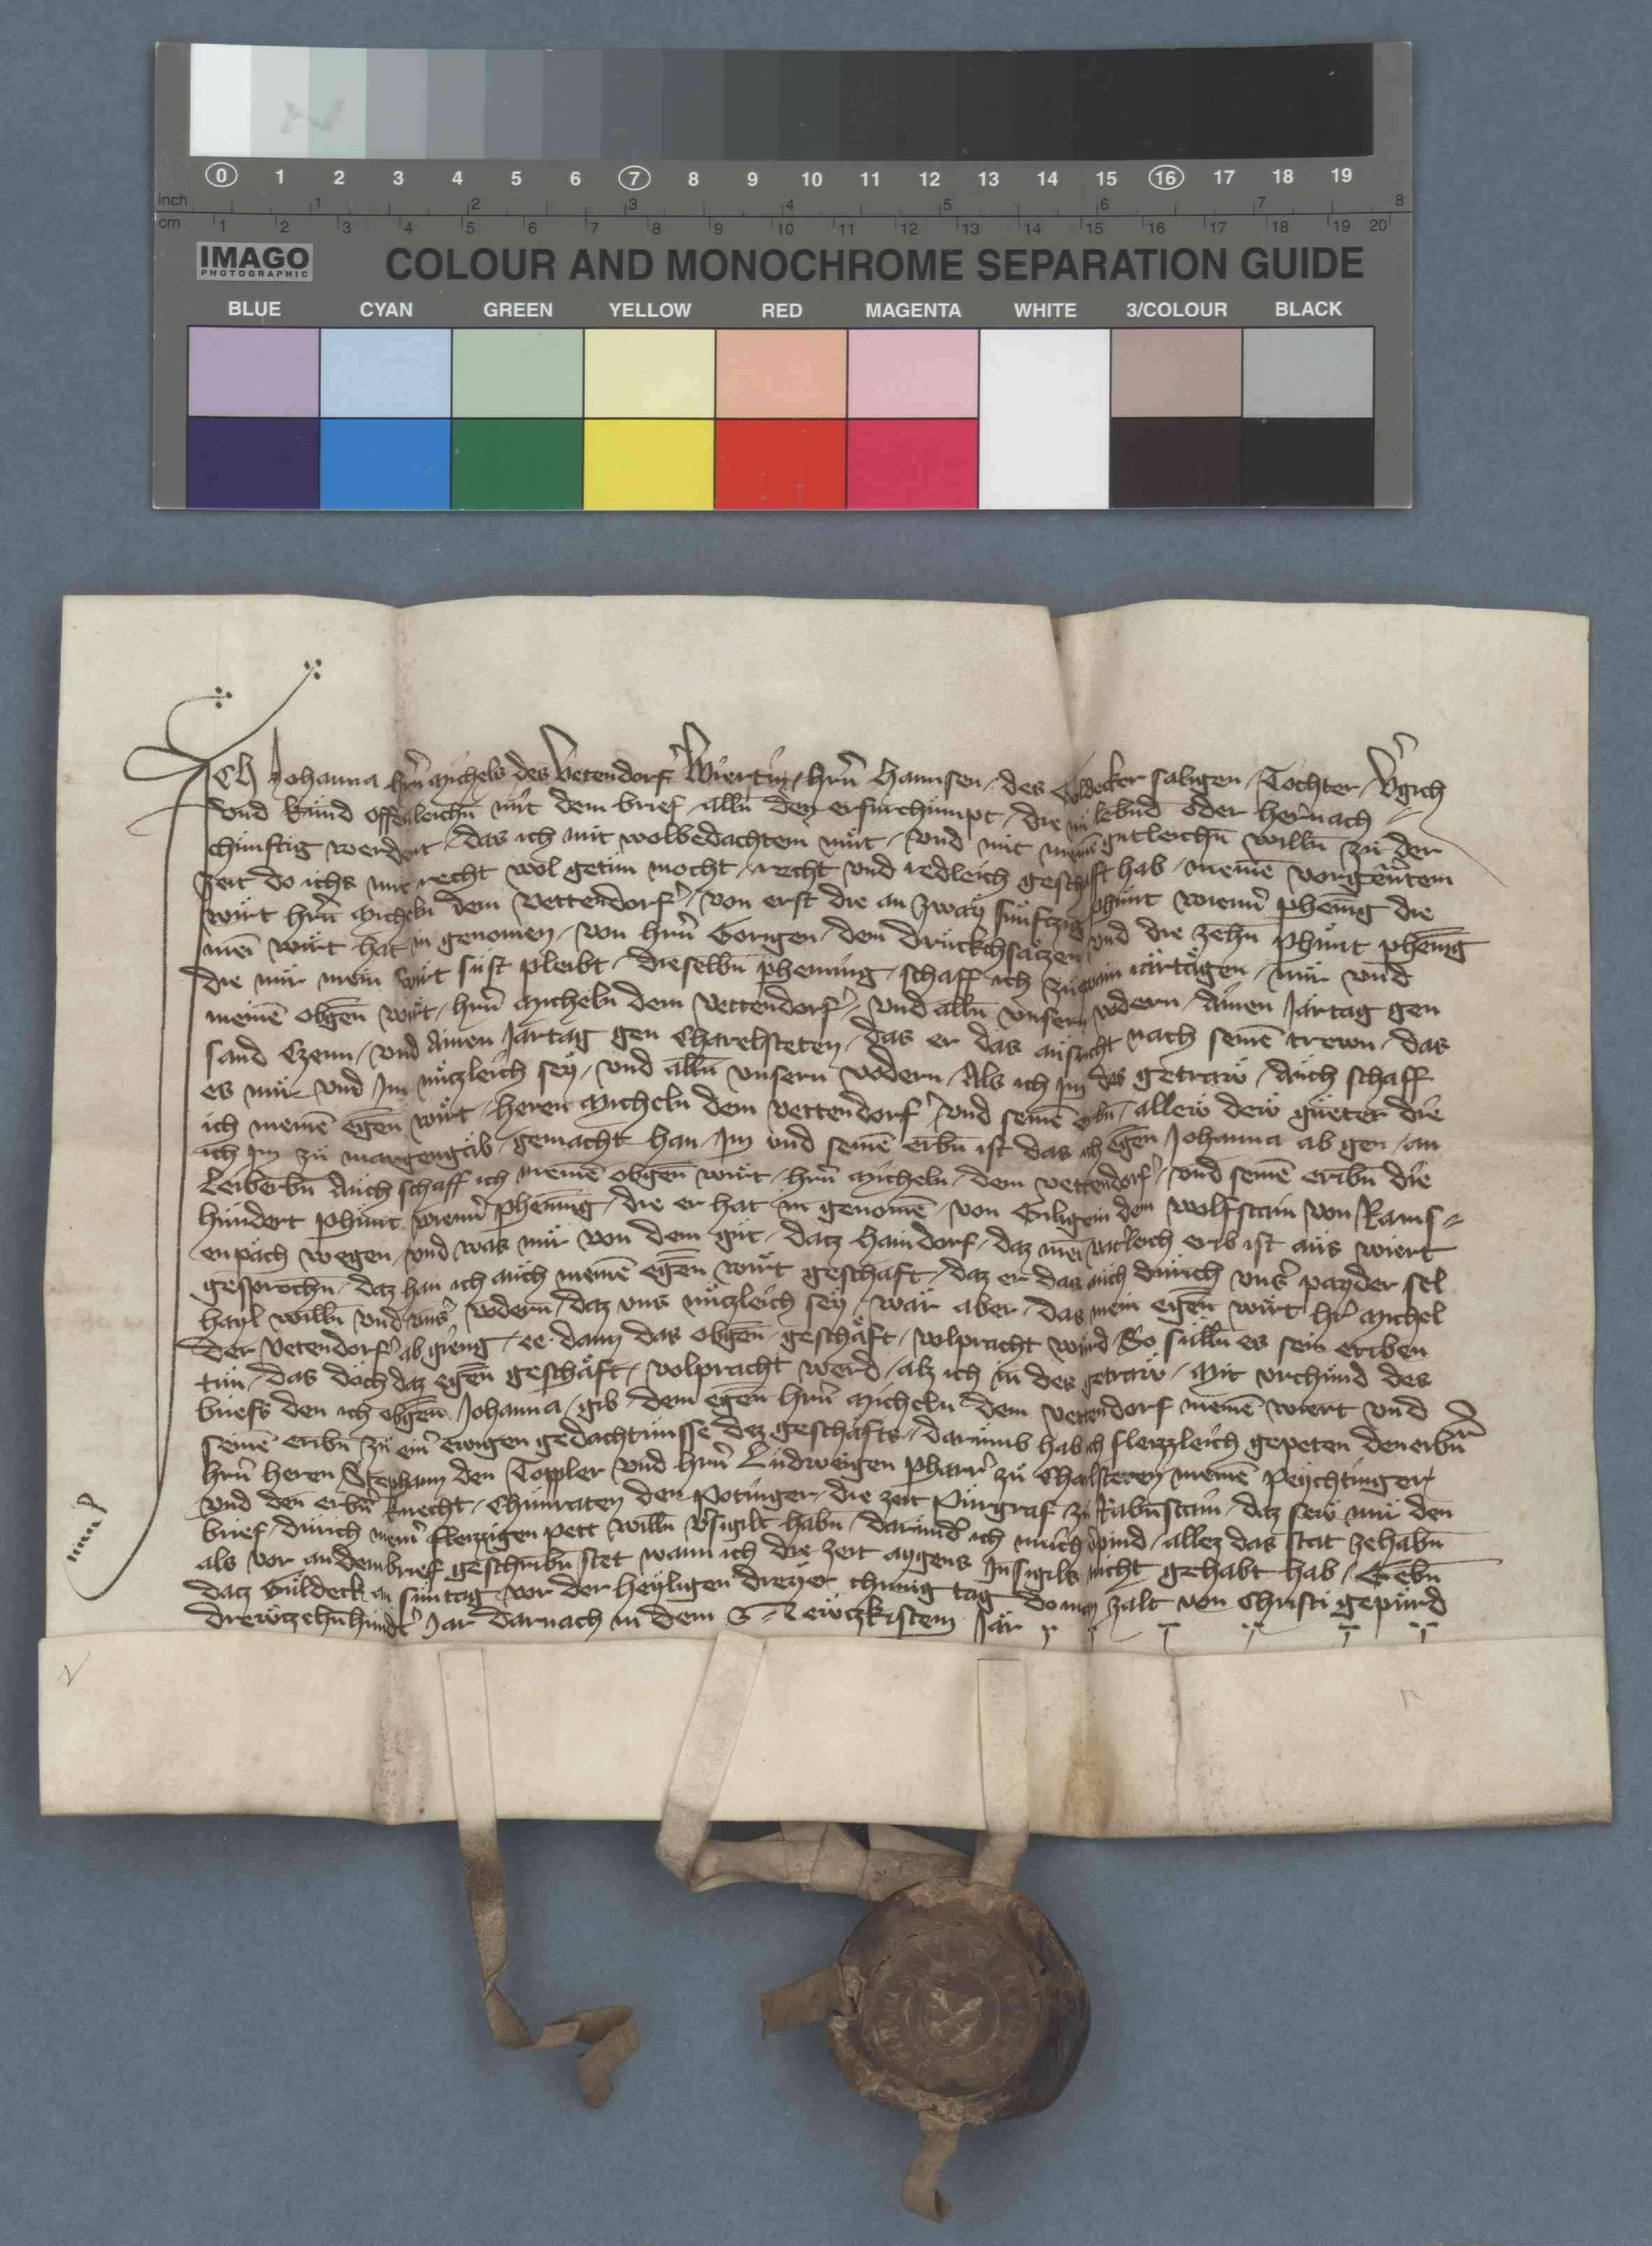 0 1 2 3 4 5 6 7 8 9 10 11 12 13 14 15 16 17 18 19
inch 1 2 3 4 5 6 7 8
cm 1 2 3 4 5 6 7 8 9 10 11 12 13 14 15 16 17 18 19 20
IMAGO
PHOTOGRAPHIC
COLOUR AND MONOCHROME SEPARATION GUIDE
BLUE CYAN GREEN YELLOW RED MAGENTA WHITE 3/COLOUR BLACK
Ich Johanna hrn̄ Michels des Vetendorf̄ Wiertin / hrn̄ Hannsen / des saligen / Tochter / Vgich
vnd kund offenleichn̄ mit dem brief / alln̄ den er furchumpt / die nu lebnd̄ oder hernach
chunftig werdent / das ich mit wolbedachtem mut / vnd mit meinē gutleichn̄ willn̄ zu der
Zeit do ichs mit recht wol getun mocht / recht vnd redleich geschaft hab / meinē vorgen̄tem
wirt hrn̄ Micheln dem Vettendorf̄ / von erst die an zway funftzig phunt wienn̄ phenīg die
mēi wirt hat in genomen / von hrn̄ Gorigen / dem Druckchsatzen vnd die zehn̄ phunt phenīg
die mir mein wirt sust pleibt / dieselbn̄ phenning / schaff ich zu iartagen / mir vnd
meinē obgen̄ wirt / hrn̄ Micheln dem Vettendorf̄ / vnd alln̄ vnsern vodern / Ainen Jartag gen
sand / vnd Ainen Jartag gen Charelsteten / das er das ausricht nach seinē trewn / das
es mir vnd Im nutzleich sey / vnd alln̄ vnsern vodern / Als ich Im des getraw / Auch schaff
ich meinē egen̄ wirt / heren Micheln dem Vettendorf̄ / vnd seinē erbn̄ / allew dew gueter die
ich Im zu margengab / gemacht han / Im vnd seinē erbn̄ ist das ich egen̄ Johanna ab gen / an
leiberbn̄ Auch schaff ich meinē obgen̄ wirt / hrn̄ Micheln / dem Vettendorf̄ / vnd seinē eribn̄ die
hundert phunt wienn̄ phenīng / die er hat in genomē / von dem Wolfstain von Rams-
enpach wegen / vnd was mir von dem gut / datz Haindorf / daz mēi vatleich erib ist aus wiert
gesprochn̄ / daz han ich auch meinē egen̄ wirt geschaft / daz er das auch durich vns̄ payder sel
hayl willn̄ vnd vns̄ vodern / daz vns nutzleich sey / war aber / das mein egen̄ wirt hr̄ Michel
der Vetendorf̄ ab gieng / ee dann das obgen̄ / geschaft / volpracht wurd / So sulln̄ es sein eriben
tun / das doch daz egen̄ geschaft / volpracht werd / alz ich in des getraw / Mit vrchund des
briefs den ich obgen̄ Johanna / gib / dem egen̄ hrn̄ Micheln dem Vettendorf meinē wiert vnd
seinē eribn̄ zu ein̄ ewigen gedachtnusse dez geschafts / darumb hab ich fleizzleich gepeten den erbn̄
hrn̄ heren Stephann den Toppler vnd hrn̄ Ludweigen pharr̄ zu meinē peychtinger
vnd den erbn̄ knecht / Chunraten den Potinger / die zeit Purgraf / zu Rabnstain / daz sew mir den
brief / durich mein̄ fleizzigen pett willn̄ v̄sigilt habn̄ / darund̄ ich mich v̄pind / allez das stat zehabn̄
als vor an dem brief geschribn̄ stet wann ich die zeit aygens Insigils nicht gehabt hab / Gebn̄
datz an suntag vor der heyligen dreyer chunig tag do man zalt von Christi gepurd
drewtzehnhundt̄ Jar darnach in dem Jar